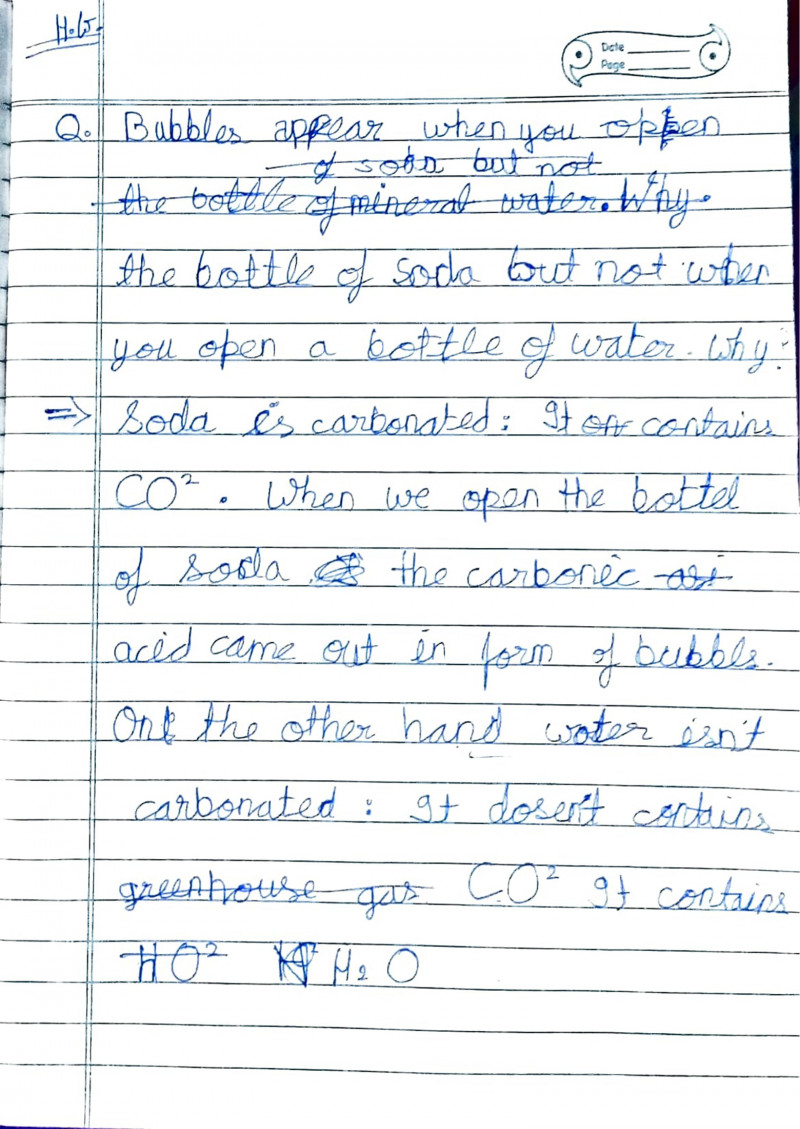 H.W.
Date
Page
Q. Bubbles appear when you open
of soda but not
the bottle of mineral water. Why.
the bottle of soda but not when
you open a bottle of water. Why?
=> Soda is carbonated: It contains
CO². When we open the bottel
of soda the carbonic
acid came out in form of bubble.
On the other hand water isn't
carbonated: It dosen't contains
greenhouse gas CO² It contains
HO² H₂O